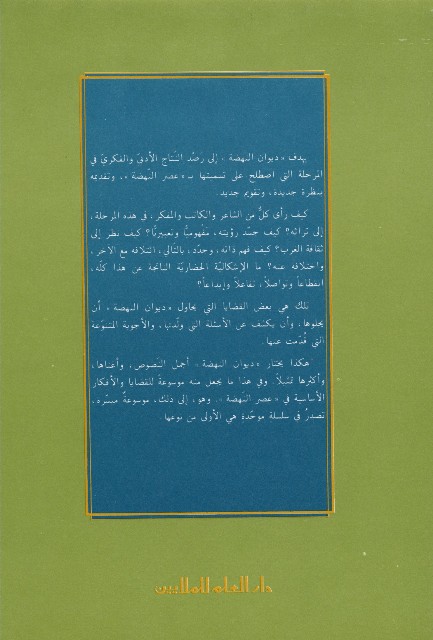 يهدف «ديوان النهضة» إلى رَصْد النّتاج الأدبيّ والفكريّ في
المرحلة التي اصطلح على تسميتها بـ «عصر النّهضة»، وتقديمه
بنظرة جديدة، وتقويم جديد.
كيف رأى كلٌّ من الشاعر والكاتب والمفكر، في هذه المرحلة،
إلى تراثه؟ كيف جسّد رؤيته، مَفْهوميًّا وتعبيريًّا؟ كيف نظر إلى
ثقافة الغرب؟ كيف فهم ذاته، وحدّد، بالتّالي، ائتلافه مع الآخر،
واختلافه عنه؟ ما الإشكاليّة الحضاريّة الناتجة عن هذا كلّه،
انقطاعاً وتواصلاً، تفاعلاً وإبداعاً؟
تلك هي بعض القضايا التي يحاول «ديوان النهضة» أن
يجلوها، وأن يكشف عن الأسئلة التي ولّدتها، والأجوبة المتنوّعة
التي قُدّمت عنها.
هكذا يختار «ديوان النهضة» أجمل النّصوص، وأغناها،
وأكثرها تمثيلاً. وفي هذا ما يجعل منه موسوعةً للقضايا والأفكار
الأساسية في «عصر النّهضة». وهو، إلى ذلك، موسوعةٌ ميسّرة،
تصدرُ في سلسلة موحّدة هي الأولى من نوعها.
دار العلم للملايين